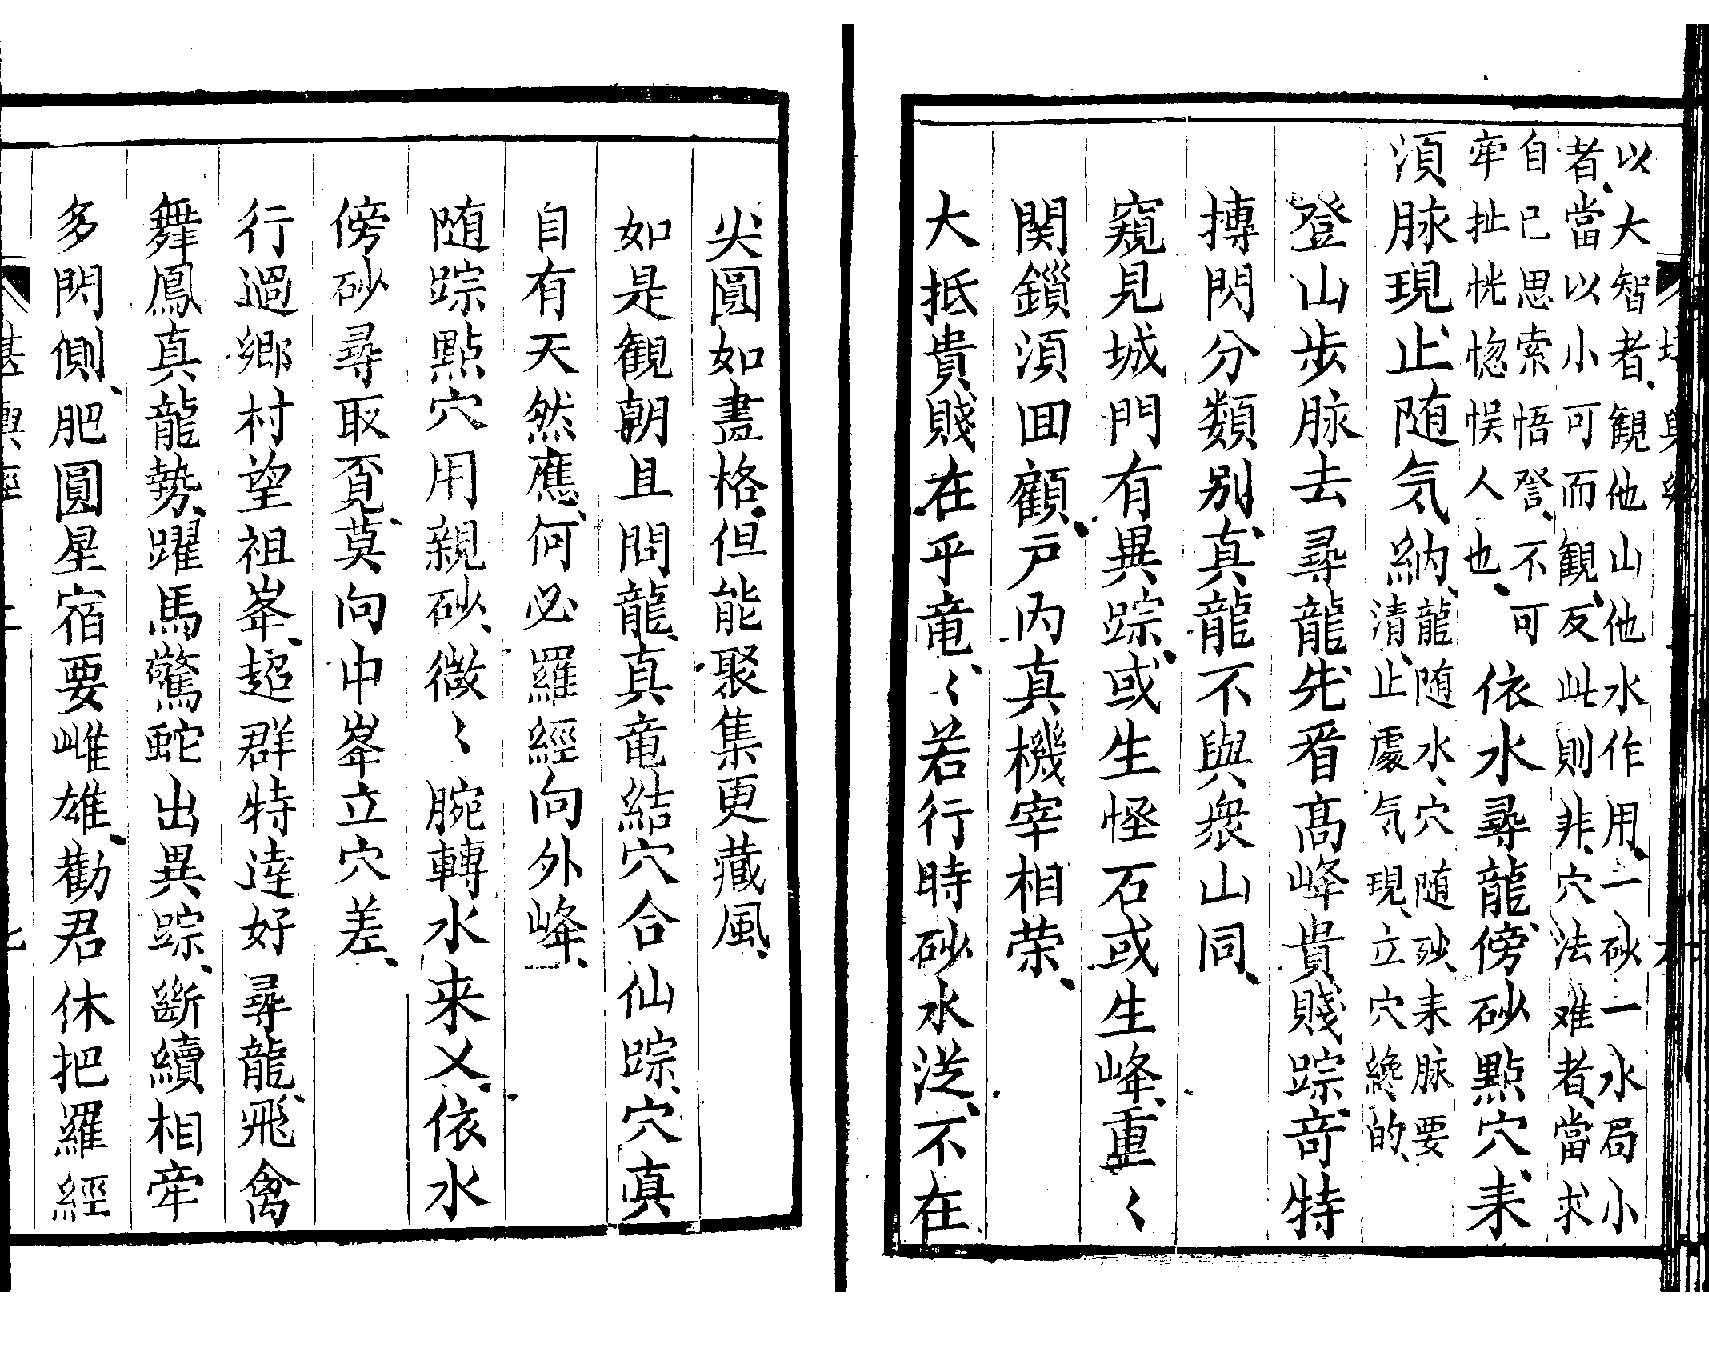 以大智者、觀他山他水作用、二砂一水局小
者、當以小可而觀、反此則非、穴法难者、當求
自已思索悟詧、不可
牵扯恍惚悮人也、
依水尋龍、傍砂點穴、耒
湏脉現止随気納、
龍随水、穴随砂、耒脉要
清、止處気現、立穴纔的、
登山步脉去尋龍、先看髙峰貴賤踪、竒特
摶閃分類别、真龍不與衆山同、
窺見城門有異踪、或生怪石或生峰、重〻
関鎖湏囬顧、戸内真機宰相荣、
大抵貴賤在乎竜〻若行時砂水从、不在
尖圓如畫格、但能聚集更藏風、
如是観朝且問龍、真竜結穴合仙踪、穴真
自有天然應、何必羅經向外峰、
随踪點穴用親砂、微〻腕轉水来乂、依水
傍砂尋取覔、莫向中峯立穴差、
行過鄉村望祖峯、超群特逹好尋龍、飛禽
舞鳳真龍勢、躍馬驚蛇出異踪、斷續相牵
多閃側、肥圓星宿要雌雄、勸君休把羅經
堪輿經